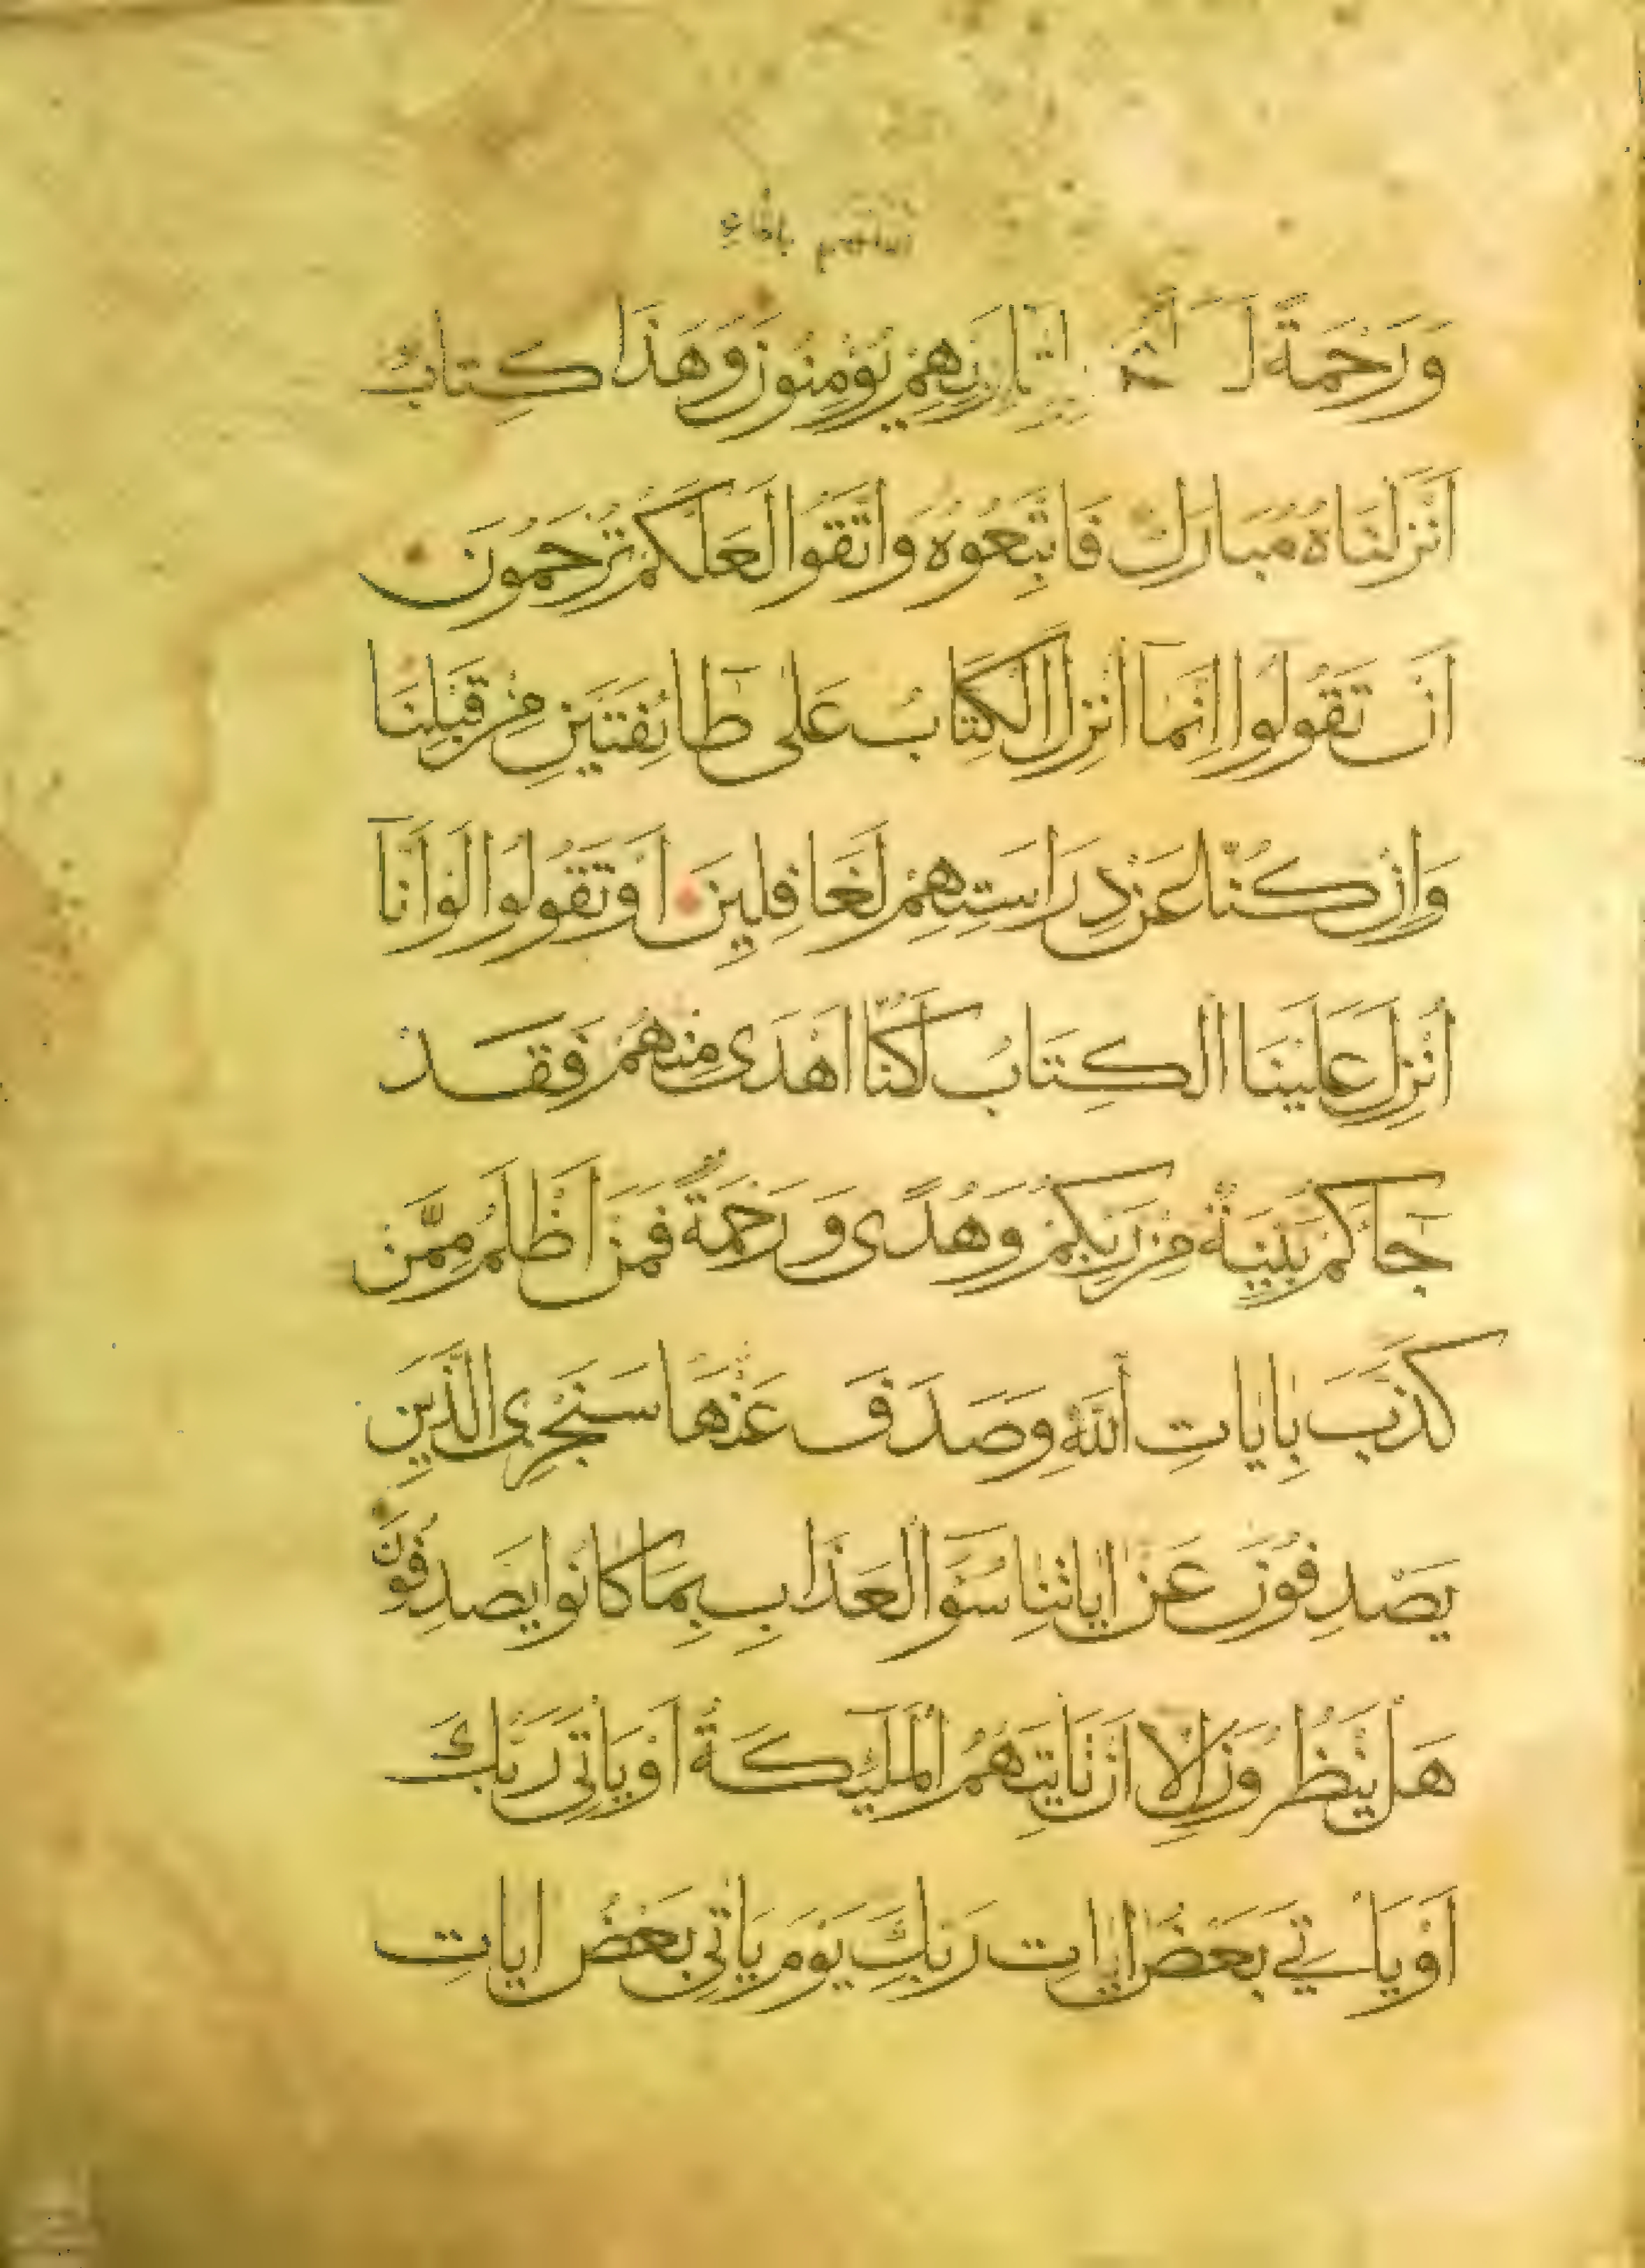 وَرَحْمَةً لَعَلَّهُمْ بِلِقَاءِ رَبِّهِمْ يُؤْمِنُونَ وَهَذَا كِتَابٌ
اَنْزَلْنَاهُ مُبَارَكٌ فَاتَّبِعُوهُ وَاتَّقُوا لَعَلَّكُمْ تُرْحَمُونَ
اَنْ تَقُولُوا اِنَّمَآ اُنْزِلَ الْكِتَابُ عَلٰى طَآئِفَتَيْنِ مِنْ قَبْلِنَا
وَاِنْ كُنَّا عَنْ دِرَاسَتِهِمْ لَغَافِلِينَ اَوْ تَقُولُوا لَوْ اَنَّآ
اُنْزِلَ عَلَيْنَا الْكِتَابُ لَكُنَّا اَهْدَى مِنْهُمْ فَقَدْ
جَآءَكُمْ بَيِّنَةٌ مِنْ رَبِّكُمْ وَهُدًى وَرَحْمَةٌ فَمَنْ اَظْلَمُ مِمَّنْ
كَذَّبَ بِاٰيَاتِ اللّٰهِ وَصَدَفَ عَنْهَا سَنَجْزِى الَّذِينَ
يَصْدِفُونَ عَنْ اٰيَاتِنَا سُوٓءَ الْعَذَابِ بِمَا كَانُوا يَصْدِفُونَ
هَلْ يَنْظُرُونَ اِلَّا اَنْ تَاْتِيَهُمُ الْمَلٰٓئِكَةُ اَوْ يَاْتِىَ رَبُّكَ
اَوْ يَاْتِيَ بَعْضُ اٰيَاتِ رَبِّكَ يَوْمَ يَاْتِى بَعْضُ اٰيَاتِ